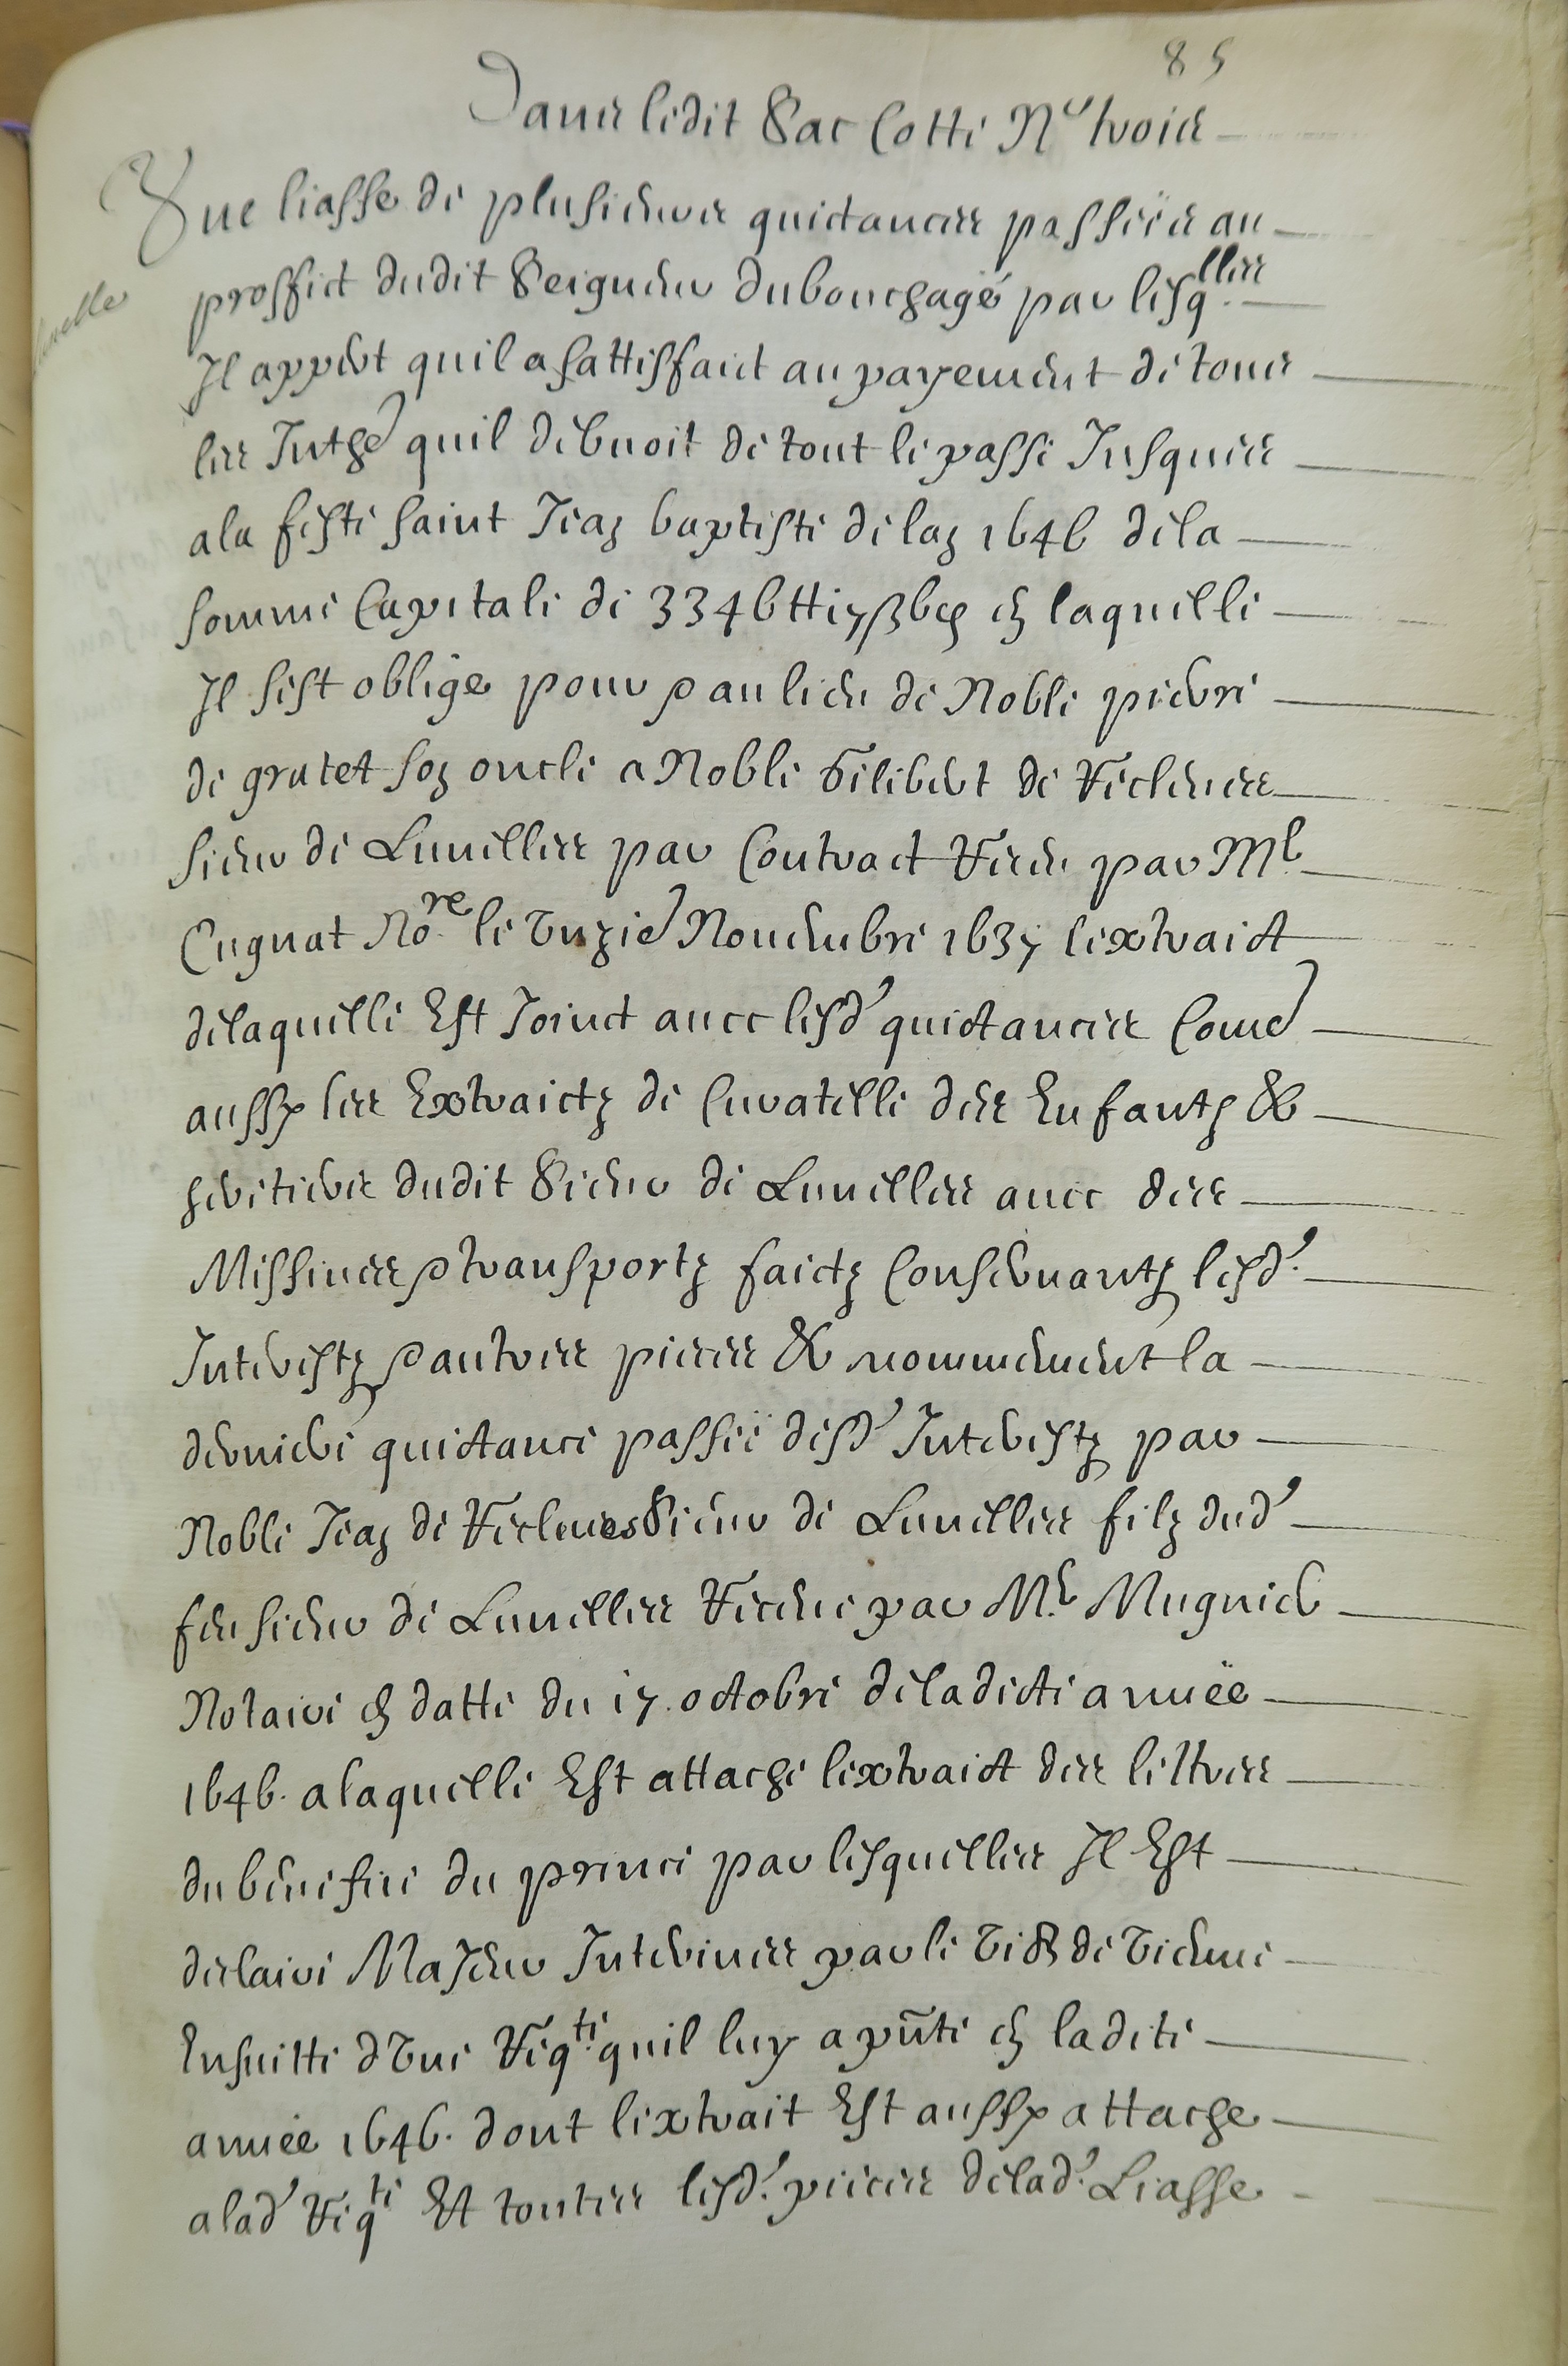 85
Dans ledit Sac Cotté N° trois
Une liasse de plusieurs quictances passées au
proffict dudit Seigneur dubouchage par lesq.lles
Il appert quil a sattisfaict au payement de tous
les Inthe quil debuoit de tout le passé Jusques
a la feste saint Jean baptiste de lan 1646 de la
somme Capitale de 3346 tt 17 ß 6 d en laquelle
Il sest obligé pour & au lieu de Noble pierre
de gratet son oncle a Noble filibert de
sieur de Luuelles par Contract Receu par Me
Cugnat No.re le Unzie Nouembre 1637 lextraict
delaquelle Est Joinct auec lesd' quictances Come
aussy les Extraictz de Curatelle des Enfantz &
heritiers dudit Sieur de Luuelles auec des
Missiues & transportz faictz Conseruantz lesd.'
Interestz & autres pieces & nommement la
derniere quictance passée desd' Interestz par
Noble Jean de Sieur de Luuelles filz dud'
feu sieur de Luuelles Receue par M.e Mugnier
Notaire en datte du 17. octobre deladicte année
1646. alaquelle Est attaché lextraict des lettres
du benefice du prince par lesquelles Il Est
declairé Majeur Interinées par le de Vienne
Ensuitte d'Une Req.te quil luy a pñté en ladite
année 1646. dont lextrait Est aussy attaché
a lad' Reqte Et toutes lesd.' pieces delad.' Liasse